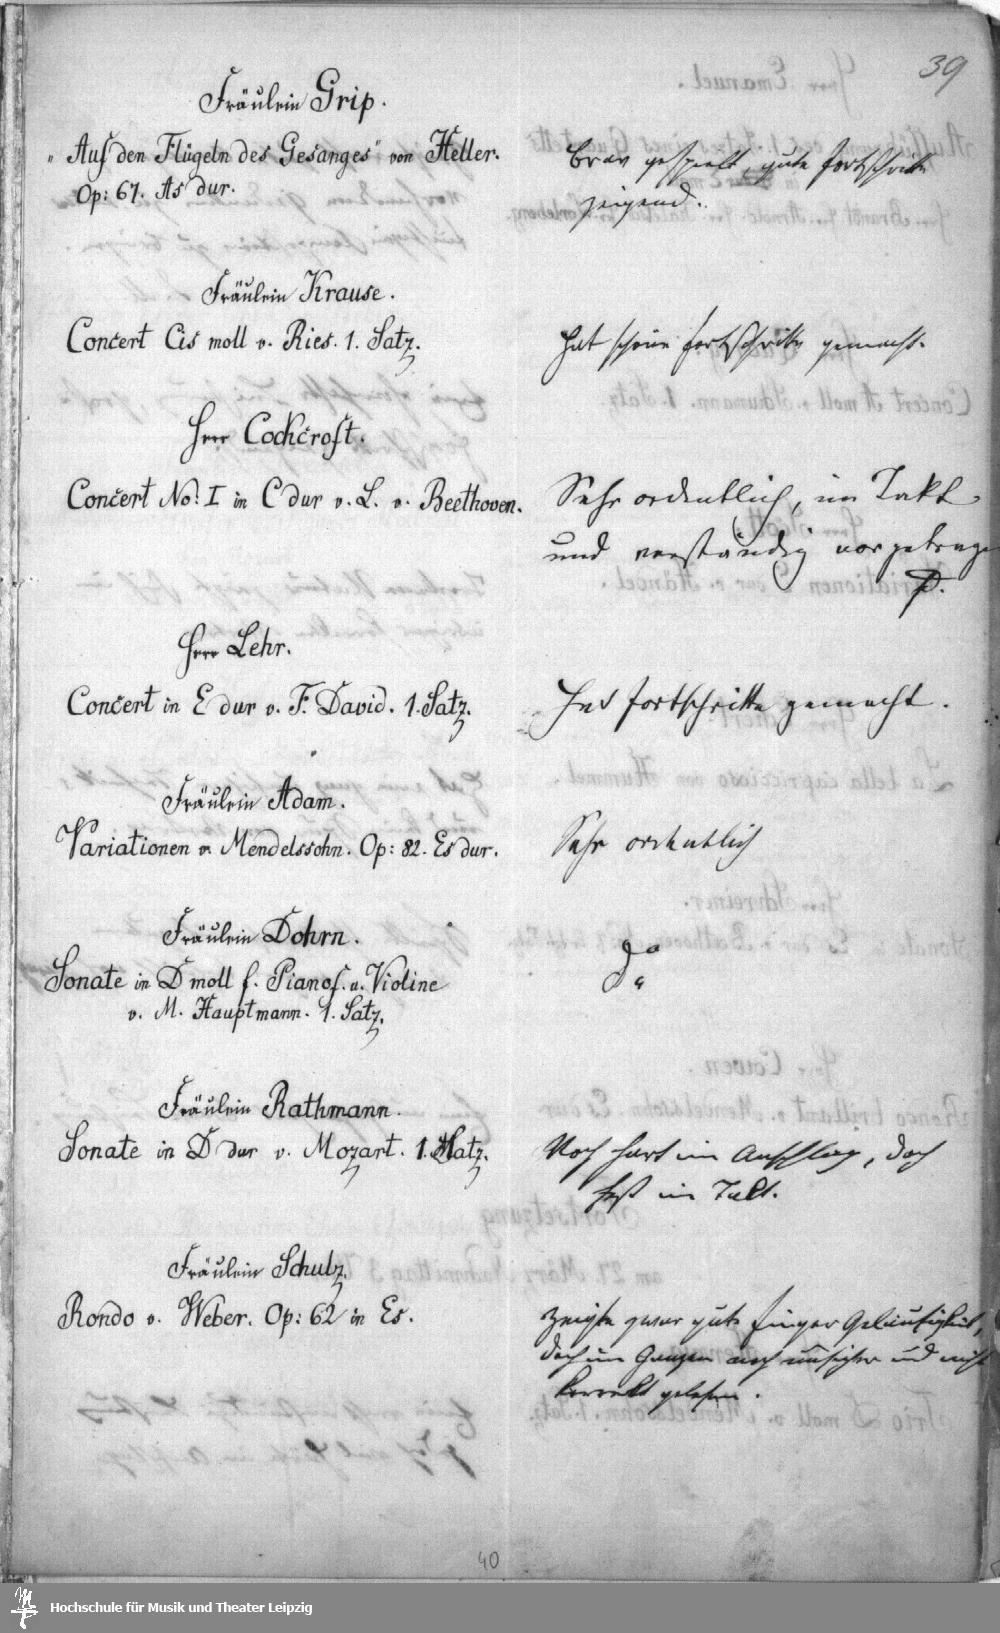 39
Fräulein Grip.
„Auf den Flügeln des Gesanges" von Heller.
Op: 67. As dur.
Brav gespielt, gute Fortschritte
zeigend.
Fräulein Krause.
Concert Cis moll v. Ries. 1. Satz.
Hat schöne Fortschritte gemacht.
Herr Cockcroft.
Concert No: I in C dur v. L. v. Beethoven.
Sehr ordentlich, im Takt
und verständig vorgetragen
P.
Herr Lehr.
Concert in E dur v. F. David. 1. Satz.
Hat Fortschritte gemacht.
Fräulein Adam.
Variationen v. Mendelssohn. Op: 82. Es dur.
Sehr ordentlich
Fräulein Dohrn.
Sonate in D moll f. Pianof. u. Violine
v. M. Hauptmann. 1. Satz.
do
Fräulein Rathmann.
Sonate in D dur v. Mozart. 1. Satz.
Noch hart im Anschlag, doch
fest im Takt.
Fräulein Schulz.
Rondo v. Weber. Op: 62 in Es.
Zeigte zwar gute Finger Geläufigkeit,
doch im Ganzen noch unsicher und nicht
korrekt gelesen.
40
Hochschule für Musik und Theater Leipzig